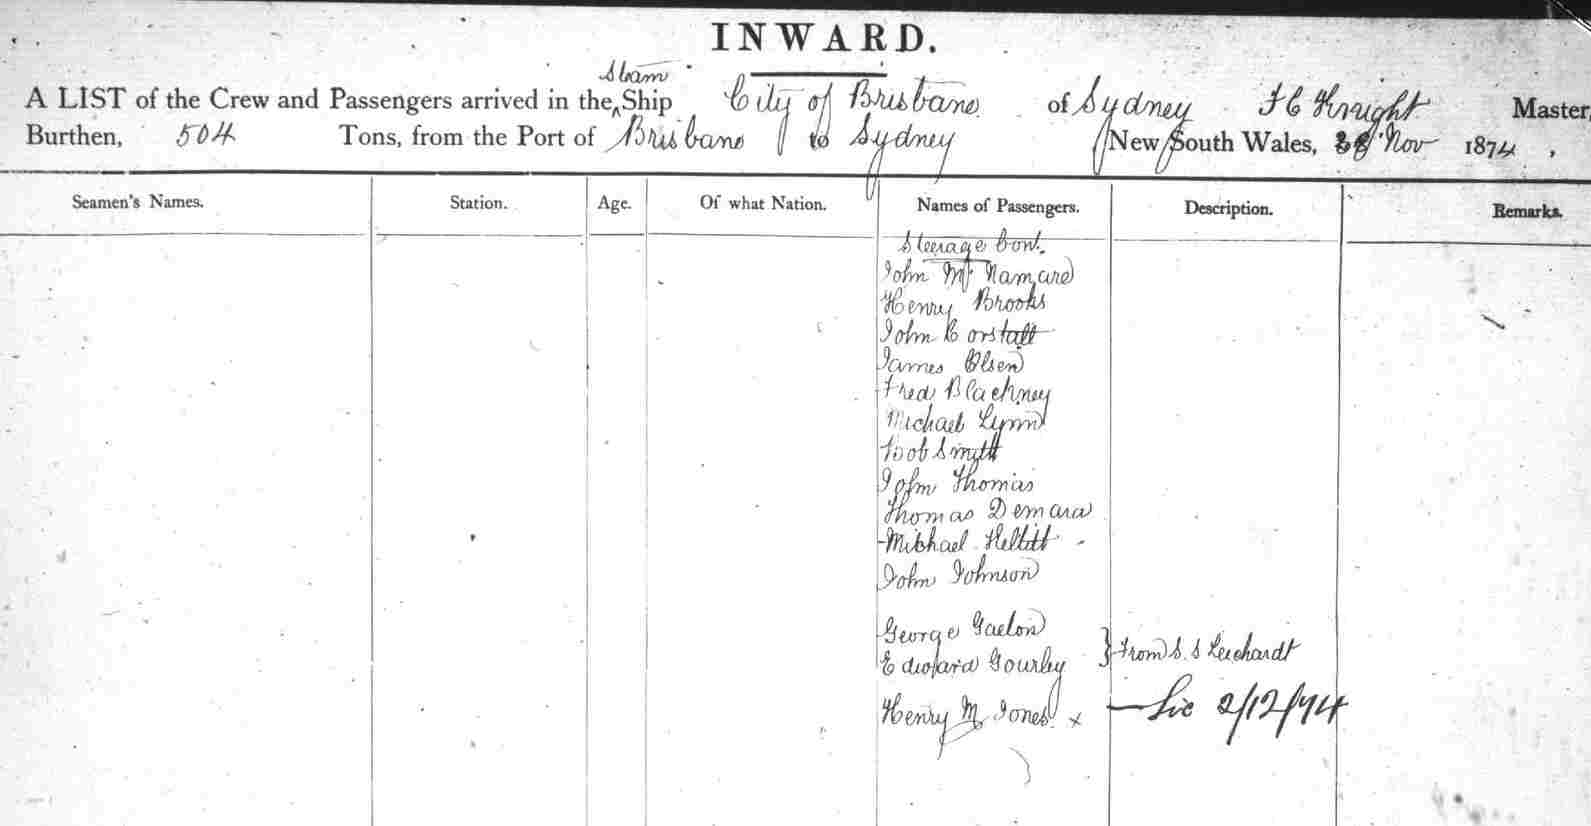 INWARD.
Steam
A LIST of the Crew and Passengers arrived in the ^ Ship City of Brisbane of Sydney F C Knight Master,
Burthen, 504 Tons, from the Port of Brisbane to Sydney New South Wales, Nov 1874,
Seamen's Names. Station. Age. Of what Nation. Names of Passengers. Description. Remarks.
Steerage Cont.
John McNamara
Henry Brooks
John
James Olsen
Fred Blackney
Michael Lynn
Bob Smyth
John Thomas
Thomas Demara
Michael
John Johnson
George
Edward Gourley } From S.S Leichardt
Henry M Jones x — 2/12/74